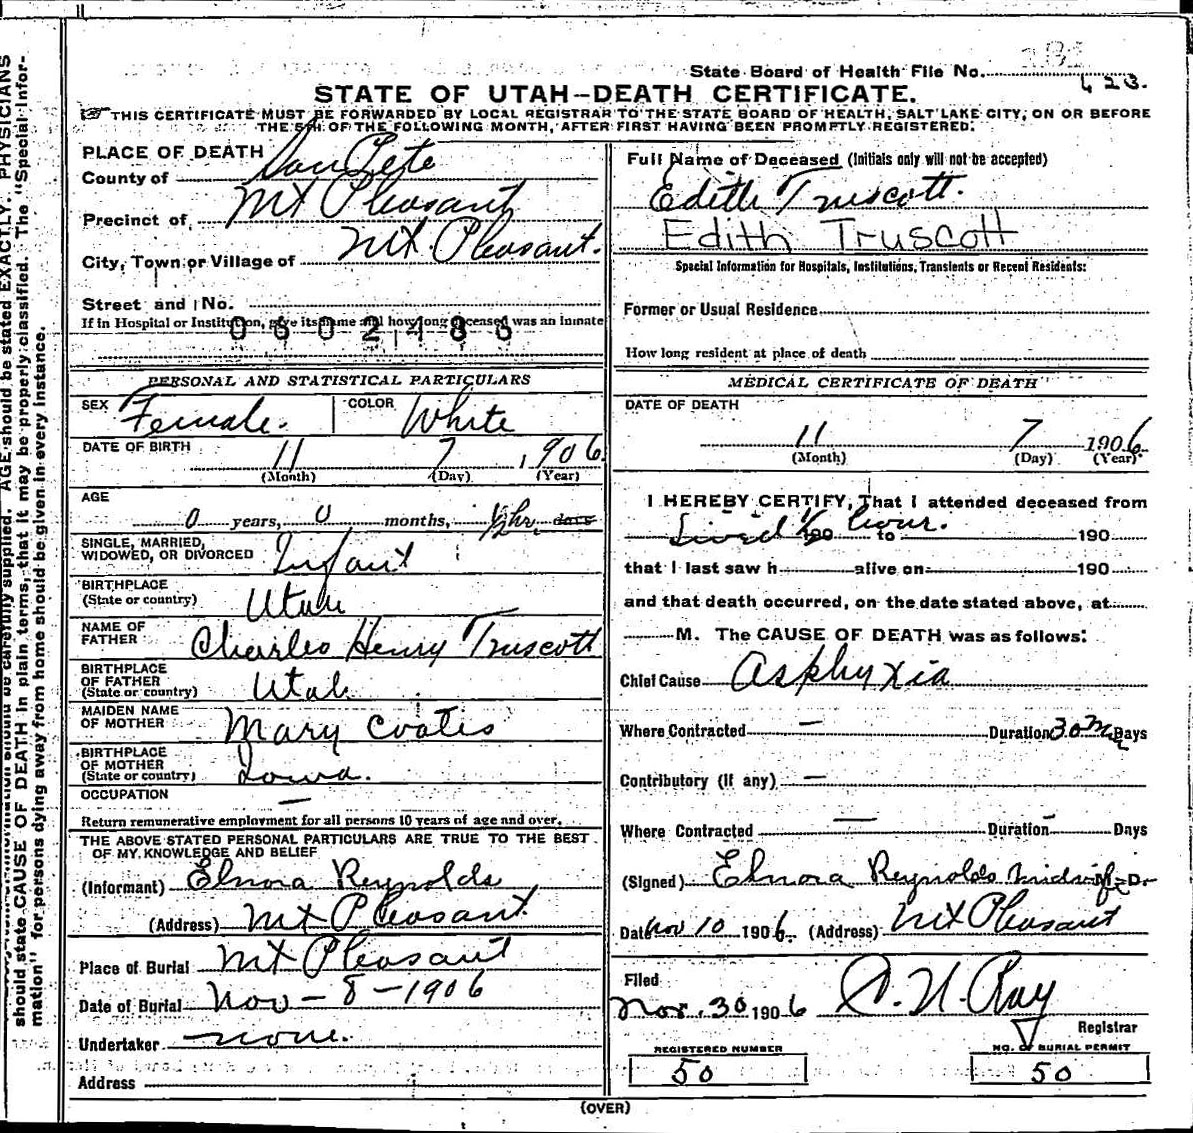 State Board of Health File No. 423.
STATE OF UTAH—DEATH CERTIFICATE.
THIS CERTIFICATE MUST BE FORWARDED BY LOCAL REGISTRAR TO THE STATE BOARD OF HEALTH, SALT LAKE CITY, ON OR BEFORE
THE 5TH OF THE FOLLOWING MONTH, AFTER FIRST HAVING BEEN PROMPTLY REGISTERED.
PLACE OF DEATH
County of SanPete
Precinct of Mt Pleasant
City, Town or Village of Mt. Pleasant.
Street and No.
If in Hospital or Institution, give its name and how long deceased was an inmate
0602486
PERSONAL AND STATISTICAL PARTICULARS
SEX Female. COLOR White
DATE OF BIRTH 11 7 1906
(Month) (Day) (Year)
AGE
0 years, 0 months, ½ hr. days
SINGLE, MARRIED,
WIDOWED, OR DIVORCED Infant
BIRTHPLACE
(State or country) Utah
NAME OF
FATHER Charles Henry Truscott
BIRTHPLACE
OF FATHER
(State or country) Utah
MAIDEN NAME
OF MOTHER Mary Coates
BIRTHPLACE
OF MOTHER
(State or country) Iowa.
OCCUPATION —
Return remunerative employment for all persons 10 years of age and over.
THE ABOVE STATED PERSONAL PARTICULARS ARE TRUE TO THE BEST
OF MY KNOWLEDGE AND BELIEF
(Informant) Elnora Reynolds
(Address) Mt Pleasant.
Place of Burial Mt Pleasant
Date of Burial Nov - 8 - 1906
Undertaker none.
Address
Full Name of Deceased (Initials only will not be accepted)
Edith Truscott.
Edith Truscott
Special Information for Hospitals, Institutions, Transients or Recent Residents:
Former or Usual Residence
How long resident at place of death
MEDICAL CERTIFICATE OF DEATH
DATE OF DEATH
11 7 1906
(Month) (Day) (Year)
I HEREBY CERTIFY, That I attended deceased from
Lived ½ hour. 190 to 190
that I last saw h alive on 190
and that death occurred, on the date stated above, at
M. The CAUSE OF DEATH was as follows:
Chief Cause Asphyxia
Where Contracted — Duration 30 m Days
Contributory (if any) —
Where Contracted — Duration — Days
(Signed) Elnora Reynolds Midwife M. D.
Date Nov 10 1906. (Address) Mt Pleasant
Filed
Nov. 30 1906 Registrar
REGISTERED NUMBER
50
NO. OF BURIAL PERMIT
50
(OVER)
AGE should be stated EXACTLY. PHYSICIANS
should state CAUSE OF DEATH in plain terms, that it may be properly classified. The "Special Infor-
mation" for persons dying away from home should be given in every instance.